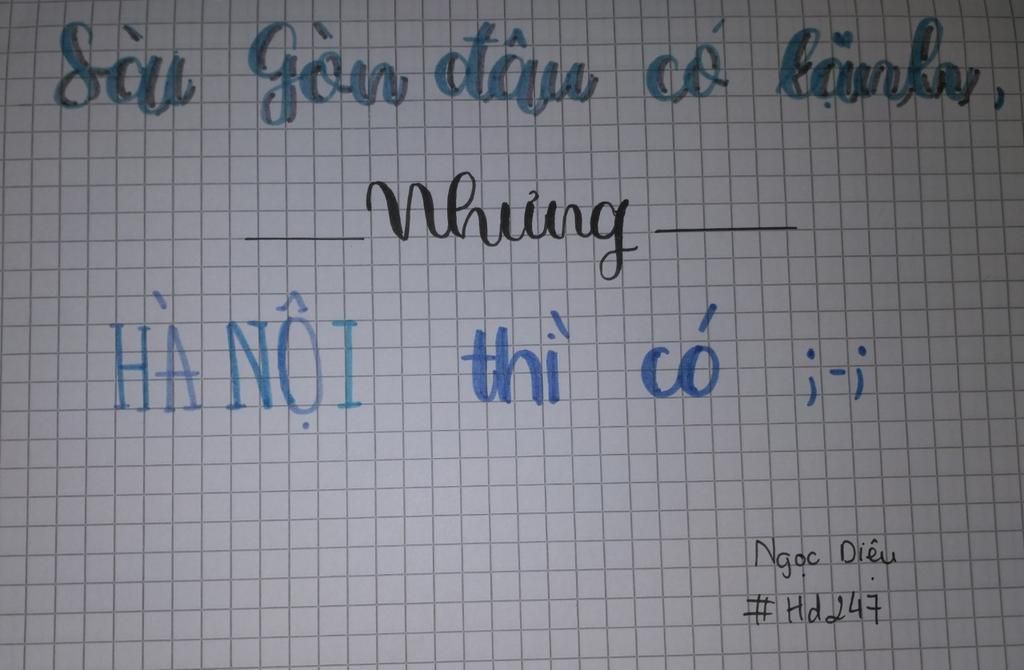 Sài Gòn đâu có lạnh,
Nhưng
HÀ NỘI thì có ;-;
Ngọc Diệu
#Hd247